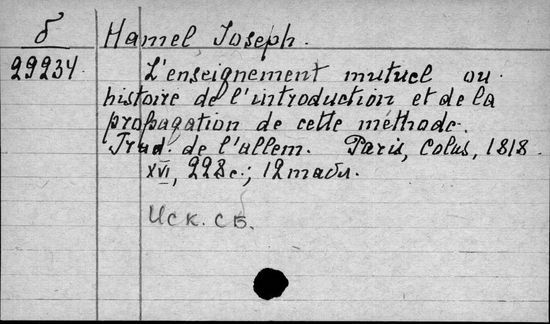 б Hamel Joseph.
29234. L'enseignement mutuel ou
histoire de l'introduction et de la
propagation de cette méthode.
Trad. de l'allem. Paris, Colas, 1818.
XVI, 228 с.; 12 табл.
Иск. сб.